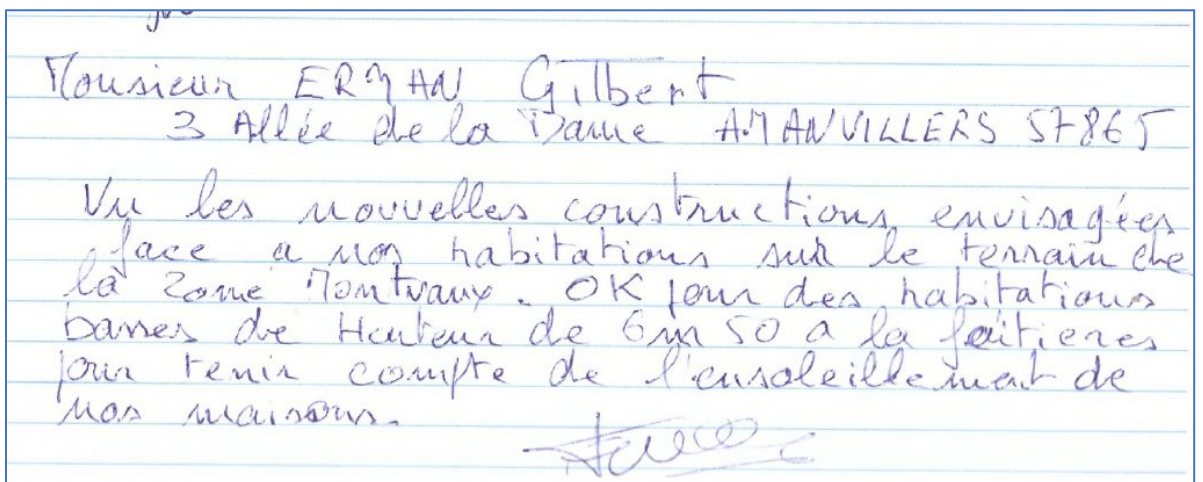 Monsieur ERMAN Gilbert
3 Allée de la Dame AMANVILLERS 57865
Vu les nouvelles constructions envisagées
face a nos habitations sur le terrain de
la Zone Montvaux. OK pour des habitations
basses de Hauteur de 6m50 a la faitieres
pour tenir compte de l'ensoleillement de
nos maisons.